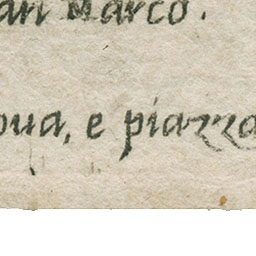 an Marco.
oua, e piazza